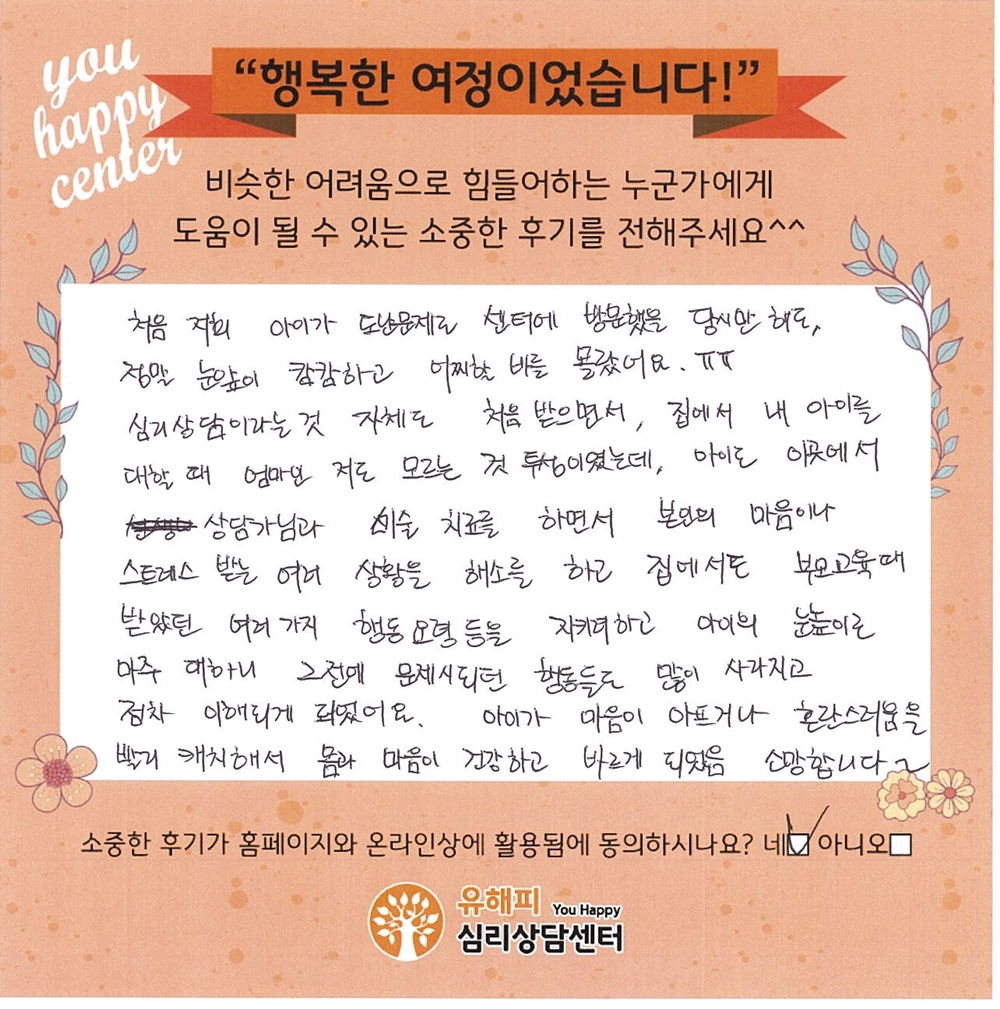 you
happy
center
“행복한 여정이었습니다!”
비슷한 어려움으로 힘들어하는 누군가에게
도움이 될 수 있는 소중한 후기를 전해주세요^^
처음 저희 아이가 도난문제로 센터에 방문했을 당시만 해도,
정말 눈앞이 캄캄하고 어찌할 바를 몰랐어요. ㅠㅠ
심리상담이라는 것 자체도 처음 받으면서, 집에서 내 아이를
대할 때 엄마인 저도 모르는 것 투성이였는데, 아이도 이곳에서
상담가님과 미술 치료를 하면서 본인의 마음이나
스트레스 받는 여러 상황을 해소를 하고 집에서도 부모교육때
받았던 여러가지 행동요령 등을 지키려하고 아이의 눈높이로
마주 대하니 그전에 문제시되던 행동들도 많이 사라지고
점차 이해되게 되었어요. 아이가 마음이 아프거나 혼란스러움을
빨리 캐치해서 몸과 마음이 건강하고 바르게 되었음 소망합니다~
소중한 후기가 홈페이지와 온라인상에 활용됨에 동의하시나요? 네 아니오
유해피 You Happy
심리상담센터